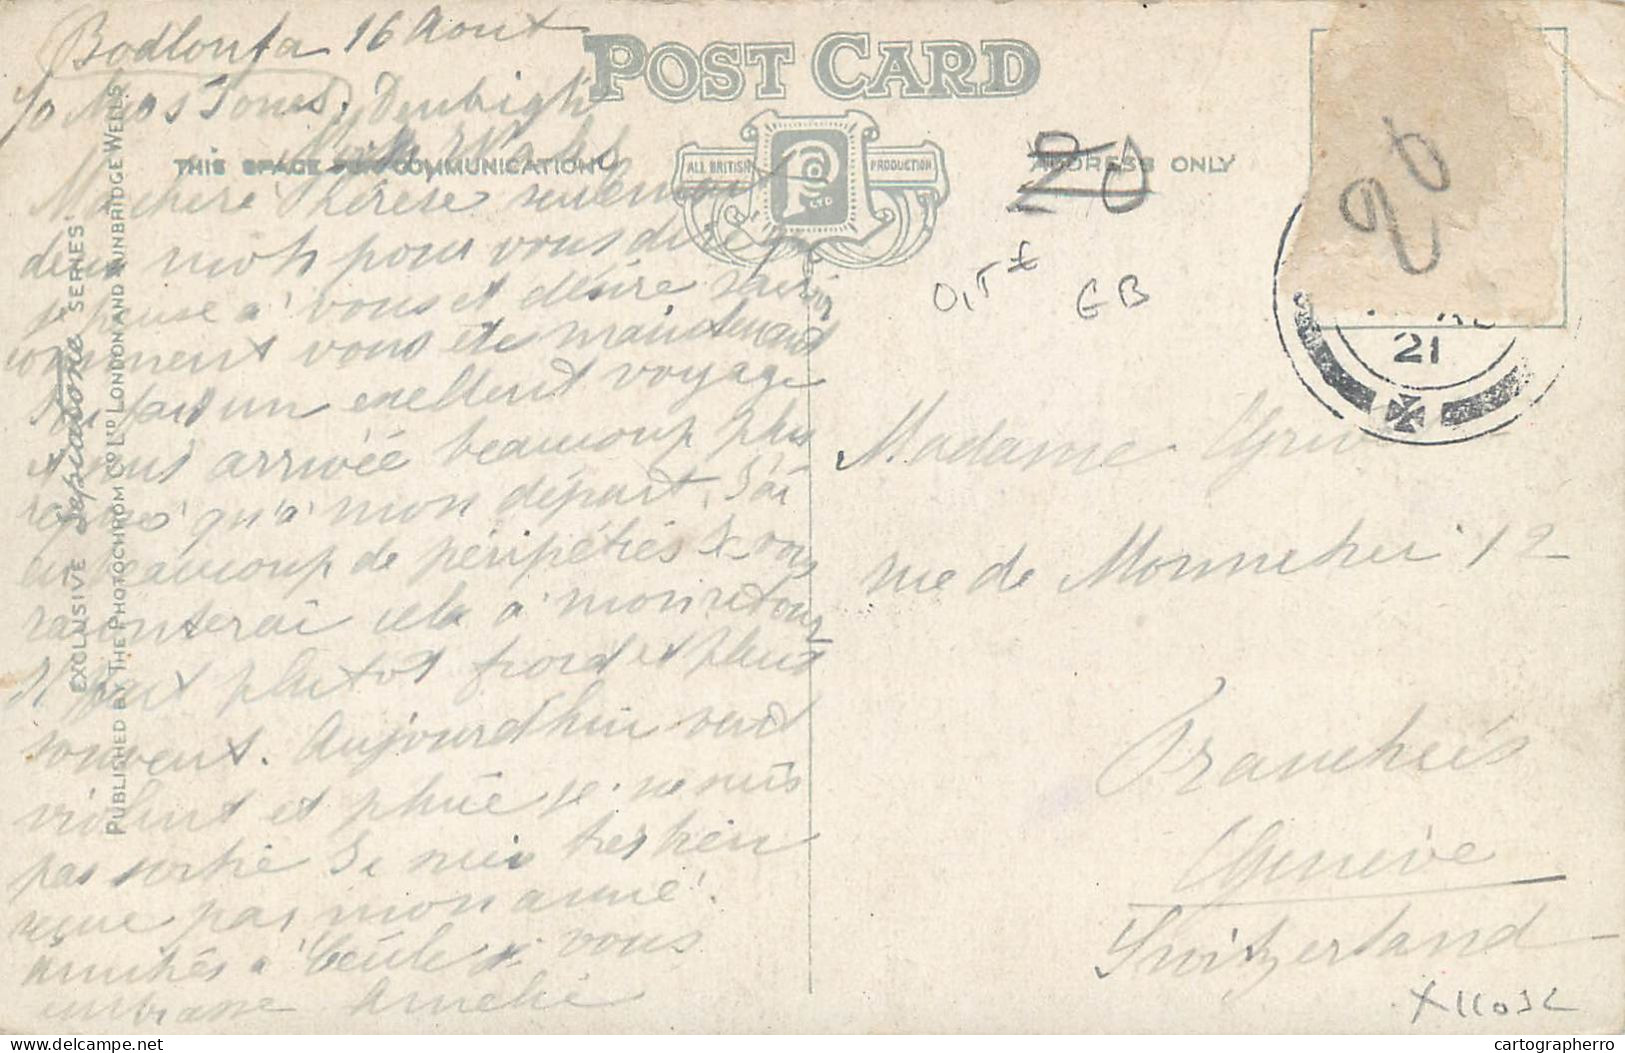 Bodlonfa 16 Aout
Jones, Denbigh
POST CARD
THIS SPACE FOR COMMUNICATION
ALL BRITISH
PRODUCTION
P
LTD
ADDRESS ONLY
20
20
0,5 £
GB
21
Ma chère Thérèse seulement
deux mots pour vous dire que
je pense à vous et désire savoir
comment vous ete maintenant
J'ai fait un exellent voyage
et suis arrivée beaucoup plus
qu'à mon départ. J'ai
eu beaucoup de péripéties je vous
raconterai cela à mon retour
Il fait plutot froid et pleut
souvent. Aujourd'hui vent
violent et pluie je ne suis
pas sortie Je suis tres bien
reçue par mon amie.
Amitiés à Cécile et vous
embrasse Amélie
EXCLUSIVE Sepiatone SERIES
PUBLISHED BY THE PHOTOCHROM CO. LTD LONDON AND TUNBRIDGE WELLS.
Madame
rue de 12
Genève
Switzerland
X11032
delcampe.net
cartographerro